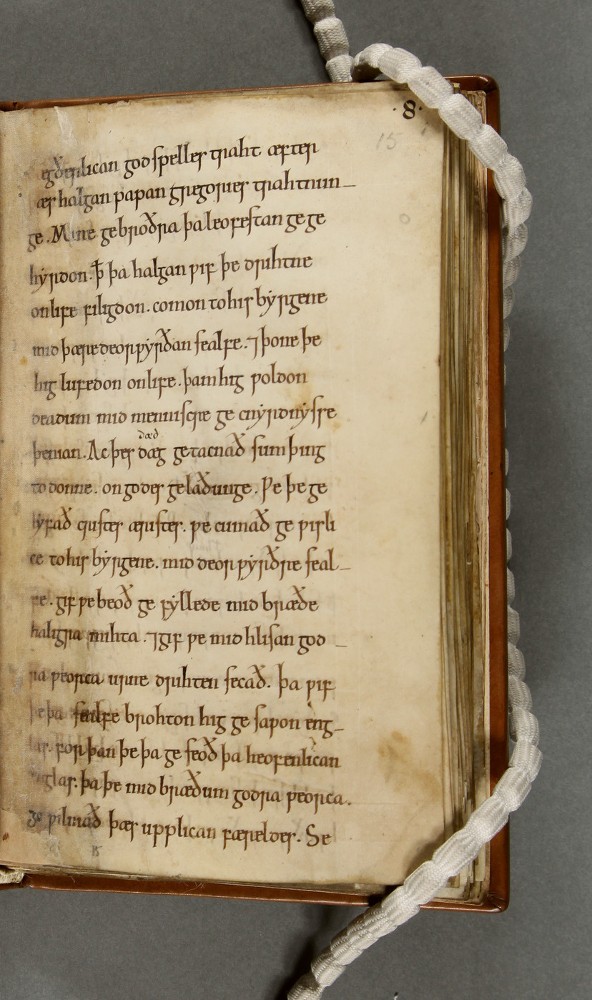 ·8·
15
egðerlican godspelles traht. æfter
ær halgan papan gregories trahtnun–
ge. Mine gebroðra þa leofestan ge ge
hyrdon. ꝥ þa halgan ƿif þe drihtne
on life filigdon. comon to his byrigene
mid þære deorƿyrðan sealfe. ⁊ þone þe
hig lufedon on life. þam hig ƿoldon
deadum mid menniscre ge cnyrdnysse
þenian. Ac þes dæg getacnað sum þing
dæd
to donne. on godes gelaðunge. Ƿe þe ge
lyfað cristes æristes. ƿe cumað ge ƿisli
ce to his byrigene. mid deorƿyrðre seal–
fe. gif ƿe beoð ge fyllede mid bræðe
haligra mihta. ⁊ gif ƿe mid hlisan god–
ra ƿeorca urne drihten secað. þa ƿif
þe þa sealfe brohton hig ge saƿon eng–
las. forþan þe þa ge seoð þa heofenlican
englas. þa þe mid bræðum godra ƿeorca.
ge ƿilniað þæs upplican færeldes. Se